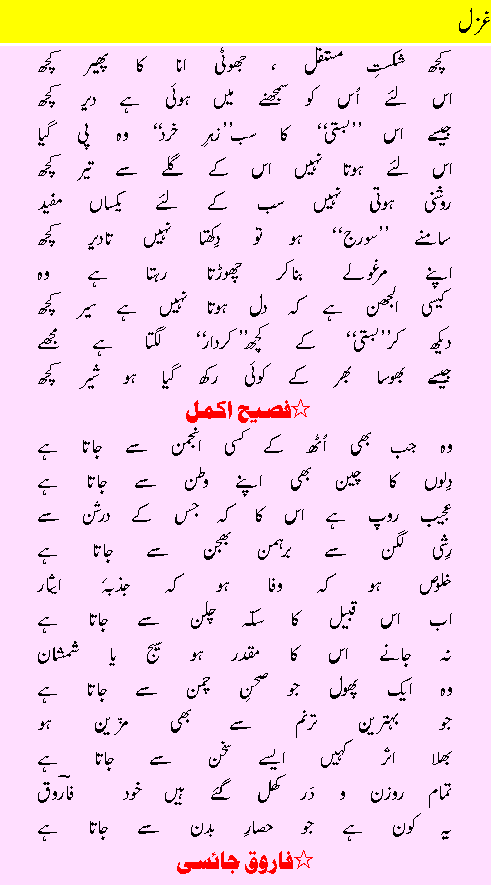 غزل
کچھ شکستِ مستقل ، جھوٹی انا کا پھیر کچھ
اس لئے اُس کو سمجھنے میں ہوئی ہے دیر کچھ
جیسے اس ’’بستی‘‘ کا سب ’’زہرِ خرد‘‘ وہ پی گیا
اس لئے ہوتا نہیں اس کے گلے سے تیر کچھ
روشنی ہوتی نہیں سب کے لئے یکساں مفید
سامنے ’’سورج‘‘ ہو تو دِکھتا نہیں تادیر کچھ
اپنے مرغولے بناکر چھوڑتا رہتا ہے وہ
کیسی الجھن ہے کہ دل ہوتا نہیں ہے سیر کچھ
دیکھ کر ’’بستی‘‘ کے کچھ ’’کردار‘‘ لگتا ہے مجھے
جیسے بھوسا بھر کے کوئی رکھ گیا ہو شیر کچھ
☆فصیح اکمل
وہ جب بھی اُٹھ کے کسی انجمن سے جاتا ہے
دِلوں کا چین بھی اپنے وطن سے جاتا ہے
عجیب روپ ہے اس کا کہ جس کے درشن سے
رِشی لگن سے برہمن بھجن سے جاتا ہے
خلوص ہو کہ وفا ہو کہ جذبۂ ایثار
اب اس قبیل کا سکّہ چلن سے جاتا ہے
نہ جانے اس کا مقدر ہو سیج یا شمشان
وہ ایک پھول جو صحنِ چمن سے جاتا ہے
جو بہترین ترنم سے بھی مزّین ہو
بھلا اثر کہیں ایسے سخن سے جاتا ہے
تمام روزن و دَر کھل گئے ہیں خود فاروقؔ
یہ کون ہے جو حصارِ بدن سے جاتا ہے
☆فاروق جائسی